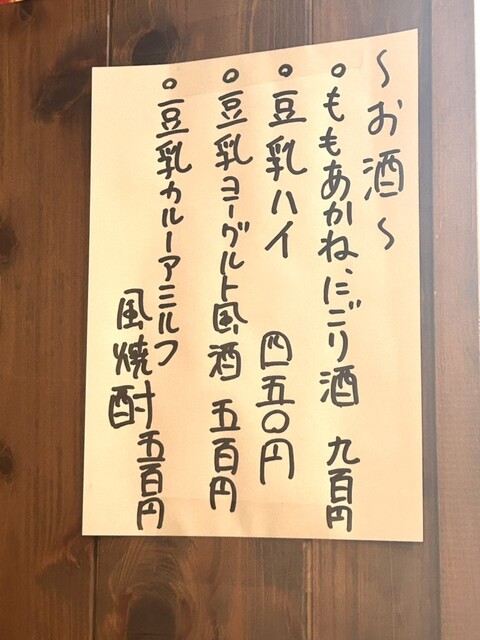 ～お酒～
○ももあかね、にごり酒 九百円
○豆乳ハイ 四五〇円
○豆乳ヨーグルト風酒 五百円
○豆乳カルーアミルク
風焼酎 五百円